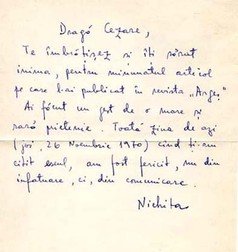 Dragă Cezare,
Te îmbrățișez și îți sărut
inima, pentru minunatul articol
pe care l-ai publicat în revista „Argeș”
Ai făcut un gest de o mare și
rară prietenie. Toată ziua de azi
(joi, 26 Noembrie 1970) cînd ți-am
citit eseul, am fost fericit, nu din
infatuare, ci, din comunicare.
Nichita